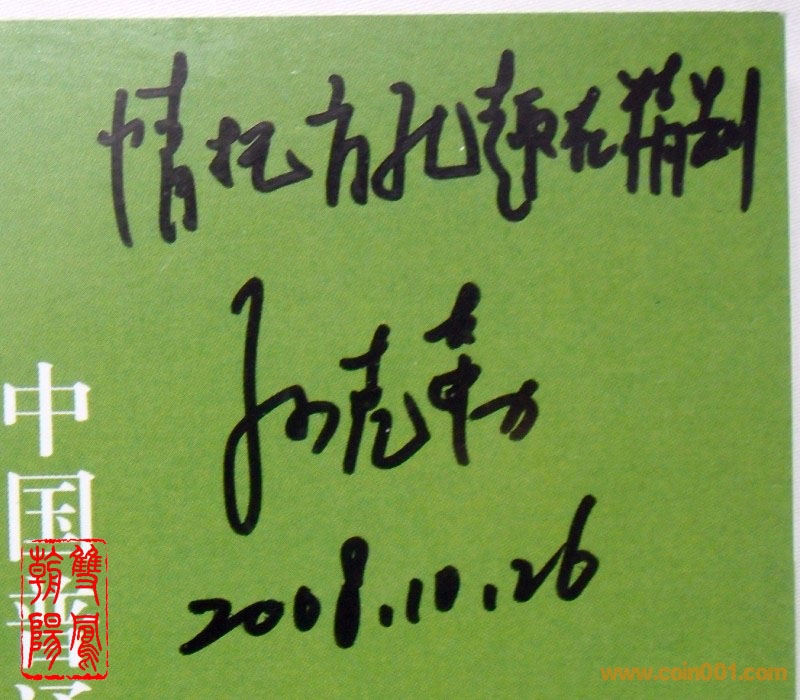 情托方孔趣在精
孙克勤
2008.10.26
中国普通
雙鳳
朝陽
www.coin001.com